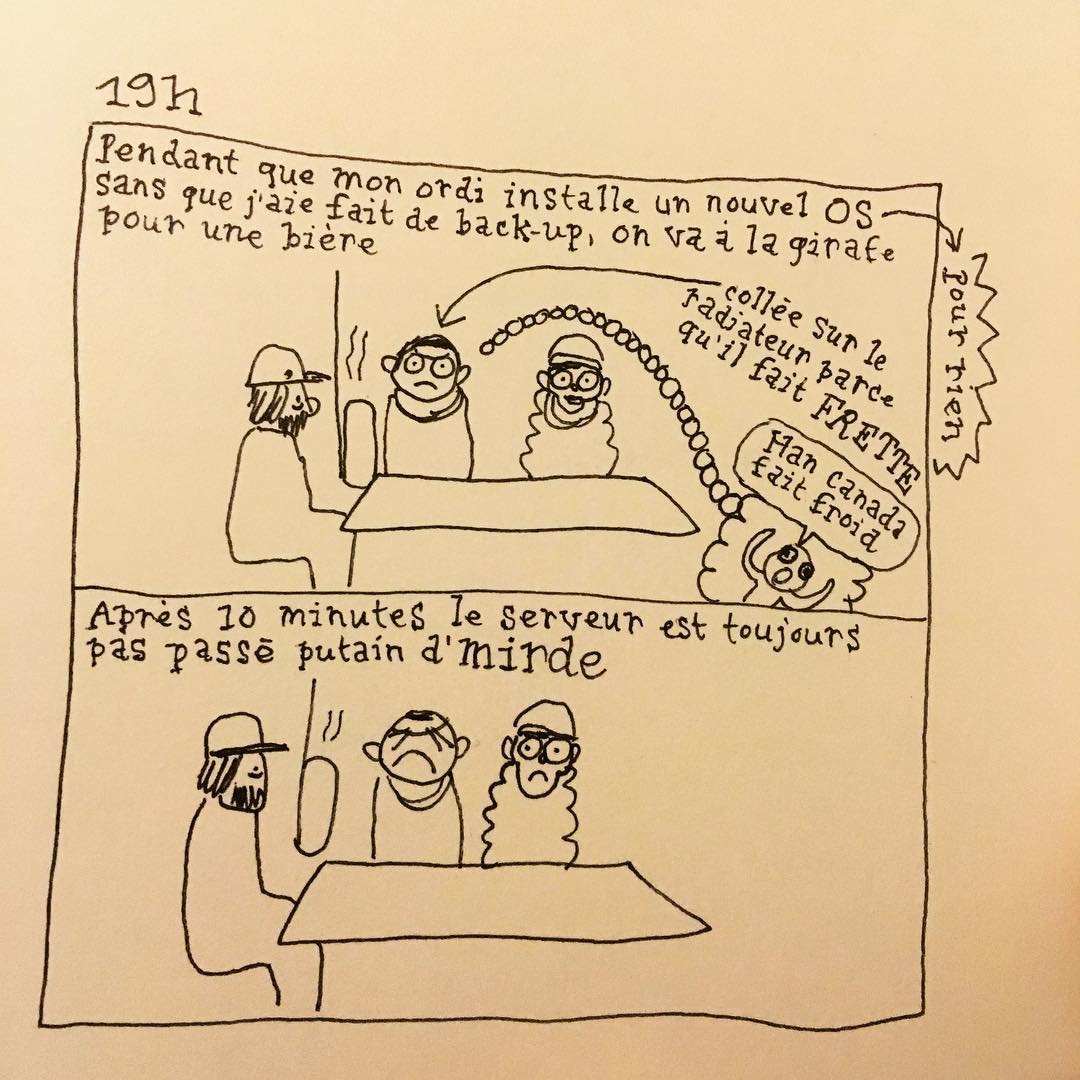 19h
Pendant que mon ordi installe un nouvel OS
sans que j'aie fait de back-up, on va à la girafe
pour une bière
pour rien
collée sur le
radiateur parce
qu'il fait FRETTE
Han canada
fait froid
Après 10 minutes le serveur est toujours
pas passé putain d'mirde